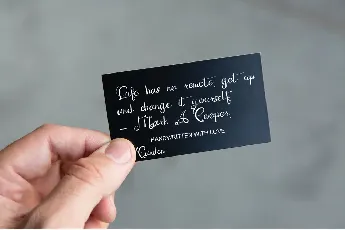 Life has no remote, get up
and change it yourself
- Mark A Cooper
HANDWRITTEN WITH LOVE